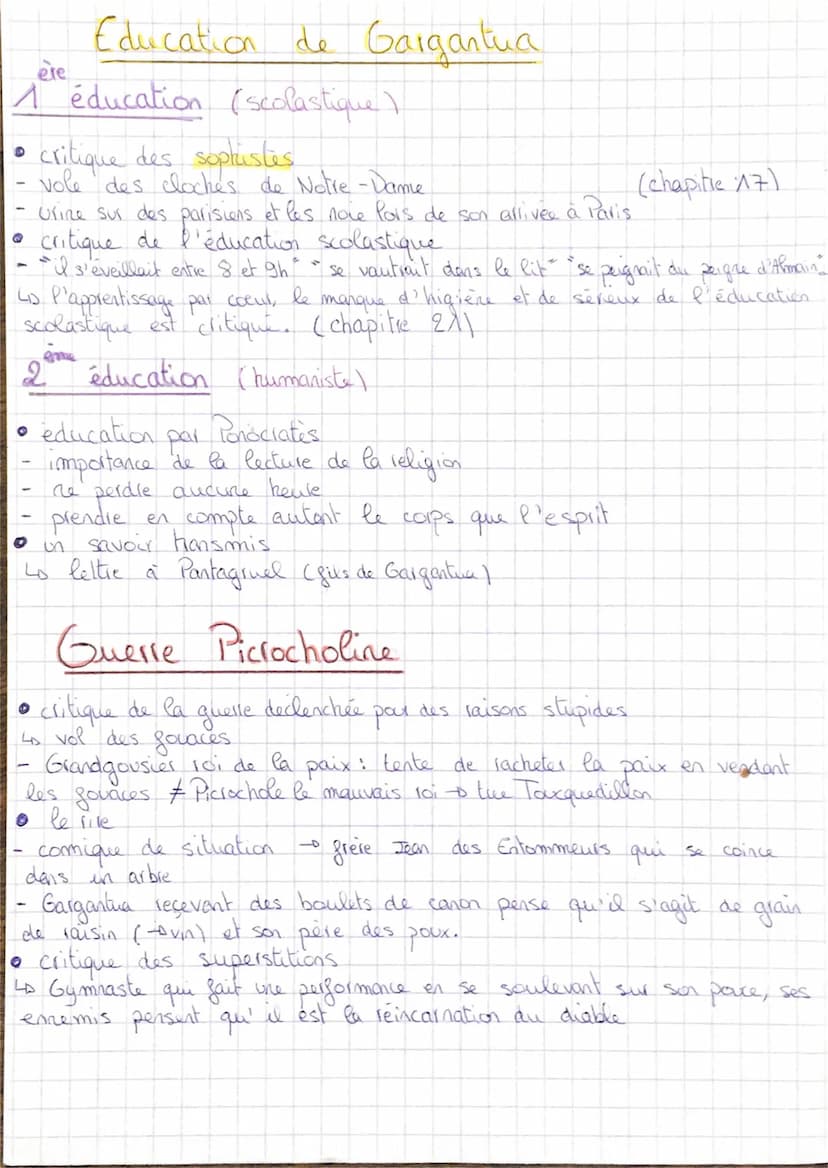 Education de Gargantua
1ère éducation (scolastique)
• critique des sophistes
- vole des cloches de Notre-Dame (chapitre 17)
- urine sur des parisiens et les noie lors de son arrivée à Paris
• critique de l'éducation scolastique
- "il s'éveillait entre 8 et 9h" "se vautrait dans le lit" "se peignait du peigne d'Almain"
↳ l'apprentissage par cœur, le manque d'higiène et de sérieux de l'éducation
scolastique est critiqué. (chapitre 21)
2ème éducation (humaniste)
• éducation par Ponocratès
- importance de la lecture de la religion
- ne perdre aucune heure
- prendre en compte autant le corps que l'esprit
• un savoir transmis
↳ lettre à Pantagruel (fils de Gargantua)
Guerre Picrocholine
• critique de la guerre déclenchée par des raisons stupides
↳ vol des fouaces
- Grandgousier roi de la paix : tente de racheter la paix en vendant
les fouaces ≠ Picrochole le mauvais roi → tue Touquedillon
• le rire
- comique de situation → frère Jean des Entommeurs qui se coince
dans un arbre
- Gargantua reçevant des boulets de canon pense qu'il s'agit de grain
de raisin (→ vin) et son père des poux.
• critique des superstitions
↳ Gymnaste qui fait une performance en se soulevant sur son pouce, ses
ennemis pensent qu'il est la réincarnation du diable